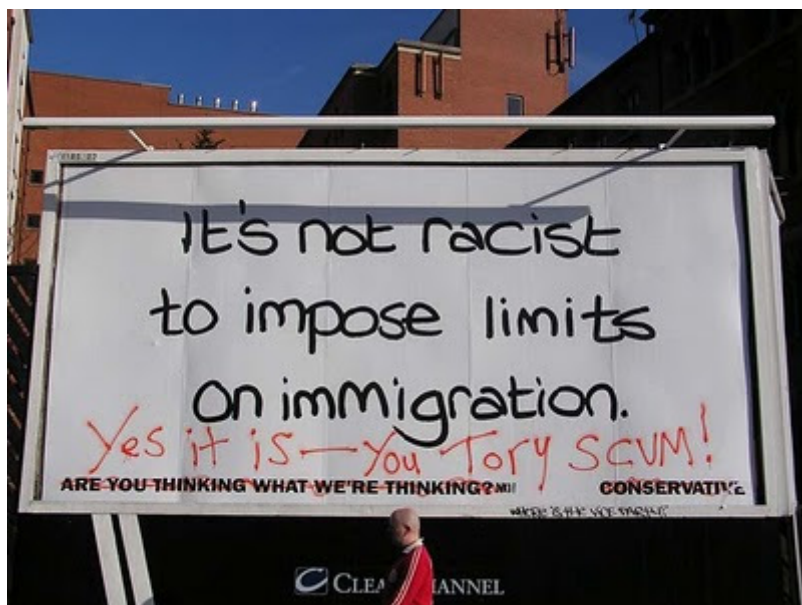 It's not racist
to impose limits
on immigration.
Yes it is - You Tory SCUM!
ARE YOU THINKING WHAT WE'RE THINKING? NO!
CONSERVATIVE
WHERE IS THE
CLEA ANNEL